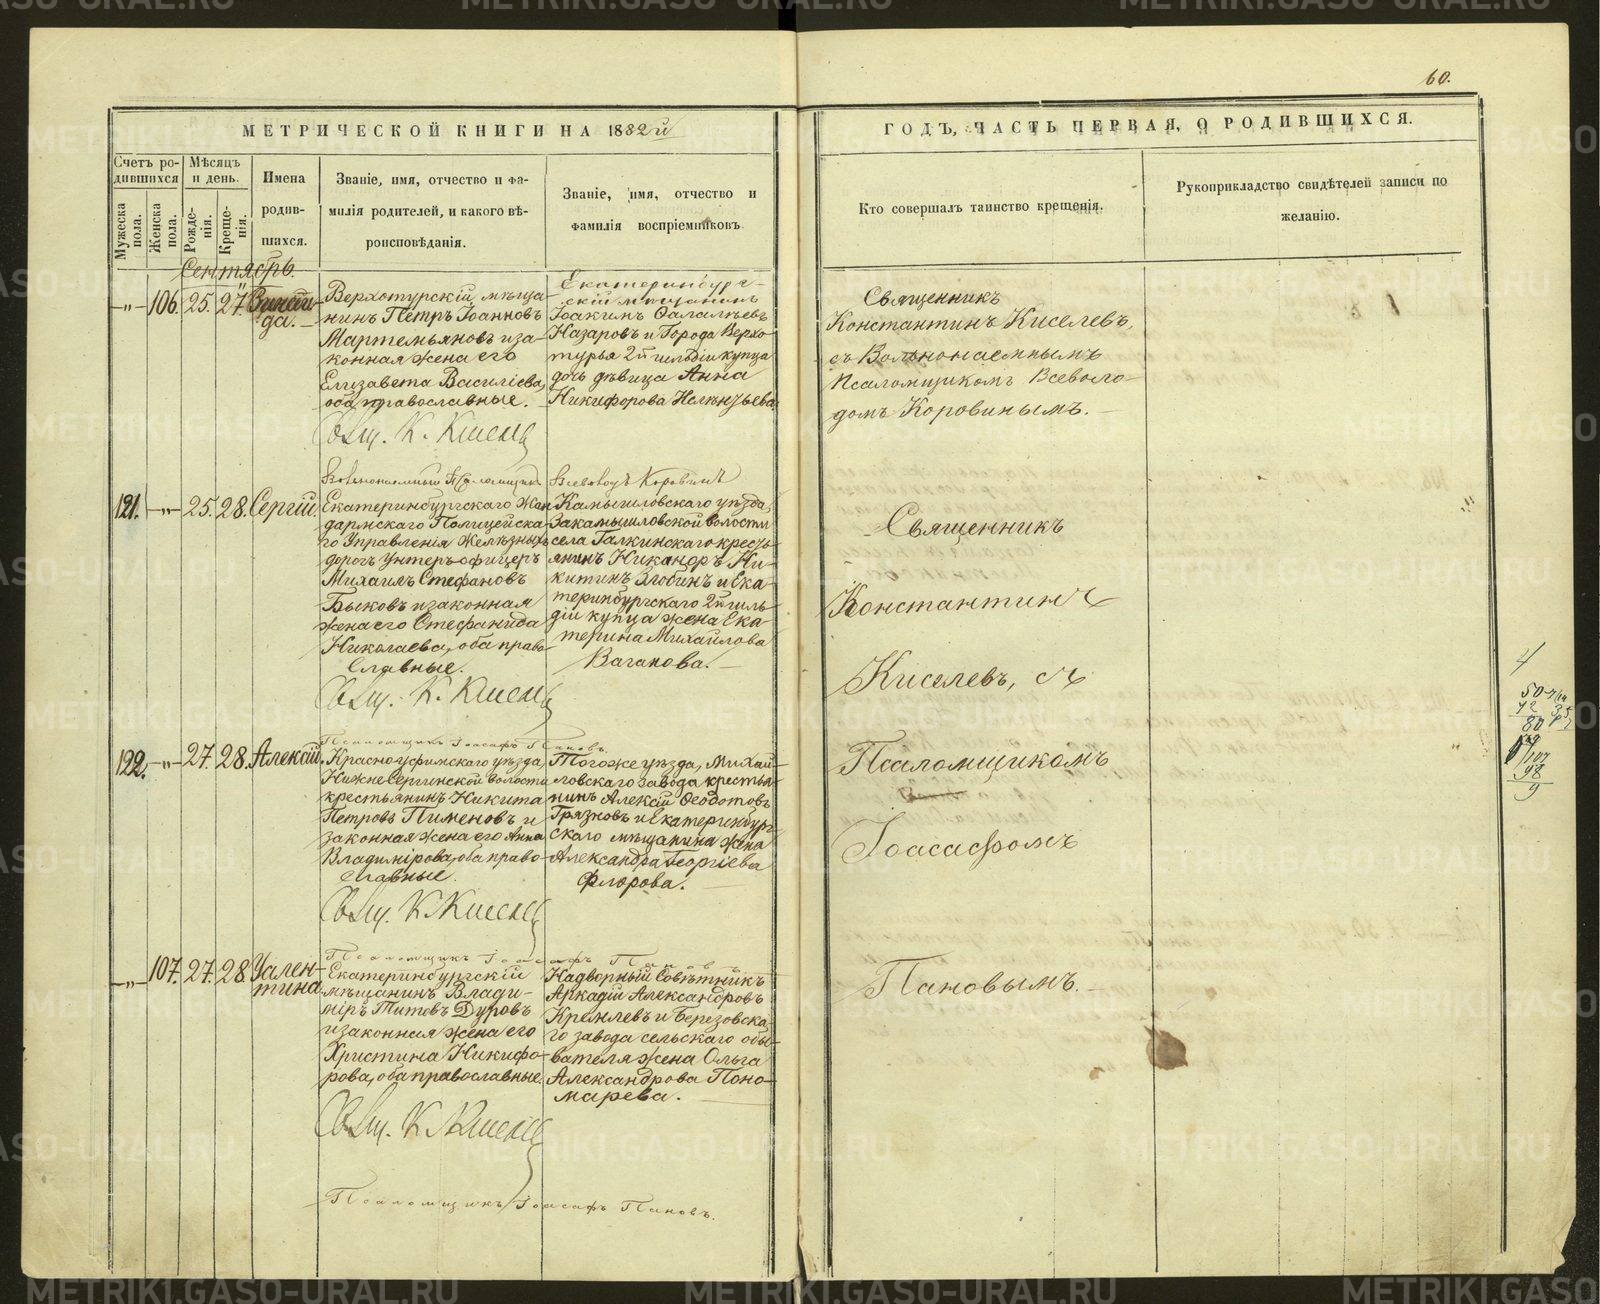 60.
МЕТРИЧЕСКОЙ КНИГИ НА 1882й
ГОДЪ, ЧАСТЬ ПЕРВАЯ, О РОДИВШИХСЯ.
Счетъ ро-
дившихся
Мужеска пола.
Женска пола.
Мѣсяцъ
и день.
Рожде-
нія.
Креще-
нія.
Имена
родив-
шихся.
Званіе, имя, отчество и фа-
милія родителей, и какого вѣ-
роисповѣданія.
Званіе, имя, отчество и
фамилія воспріемниковъ
Кто совершалъ таинство крещенія.
Рукоприкладство свидѣтелей записи по
желанію.
Сентябрь.
-„- 106. 25. 27.
да.-
Верхотурскій мѣща-
нинъ Петръ Іоанновъ
Мартемьяновъ и за-
конная жена его
Елизавета Василіева,
оба православные.
Екатеринбург-
скій мѣщанинъ
Іоакимъ
Назаровъ и Города Верхо-
турья 2й гильдіи купца
дочь дѣвица Анна
Никифорова
Священникъ
Константинъ Киселевъ,
съ Вольнонаемнымъ
Псаломщикомъ Всеволо-
домъ Коровинымъ.-
Свящ. К. Киселевъ
Вольнонаемный Псаломщикъ Всеволодъ Коровинъ
121. -„- 25. 28. Сергій.
Екатеринбургскаго Жан-
дармскаго Полицейска-
го Управленія Желѣзныхъ
дорогъ Унтеръ-офицеръ
Михаилъ Стефановъ
Быковъ и законная
жена его Стефанида
Николаева, оба право-
славные.
Камышловскаго уѣзда,
Закамышловской волости
села Галкинскаго кресть-
янинъ Никаноръ Ни-
китинъ Злобинъ и Ека-
теринбургскаго 2й гиль-
діи купца жена Ека-
терина Михайлова
Ваганова.-
Священникъ
Константинъ
Киселевъ, съ
Псаломщикомъ
Іоасафомъ
Пановымъ.-
Свящ. К. Киселевъ
Псаломщикъ Іоасафъ Пановъ.
122. -„- 27. 28. Алексій.
Красноуфимскаго уѣзда,
Нижне Сергинской волости
крестьянинъ Никита
Петровъ Пименовъ и
законная жена его Анна
Владимірова, оба право-
славные.
Тогоже уѣзда, Михай-
ловскаго завода крестья-
нинъ Алексій Ѳеодотовъ
Грязновъ и Екатеринбург-
скаго мѣщанина жена
Александра Георгіева
Флорова.
Свящ. К. Киселевъ
Псаломщикъ Іоасафъ Пановъ
-„- 107. 27. 28. Уален-
тина.
Екатеринбургскій
мѣщанинъ Влади-
міръ Титовъ Дуровъ
и законная жена его
Христина Никифо-
рова, оба православные.
Надворный Совѣтникъ
Аркадій Александровъ
Кремлевъ и Березовска-
го завода сельскаго обы-
вателя жена Ольга
Александрова Поно-
марева.
Свящ. К. Киселевъ
Псаломщикъ Іоасафъ Пановъ.
4
50